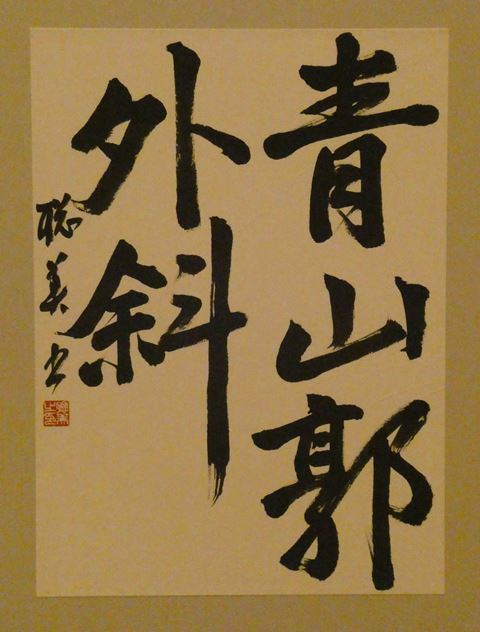 青山郭
外斜
聡美书